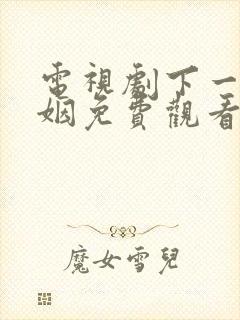 電視劇下一
姻免費觀看
魔女雪兒